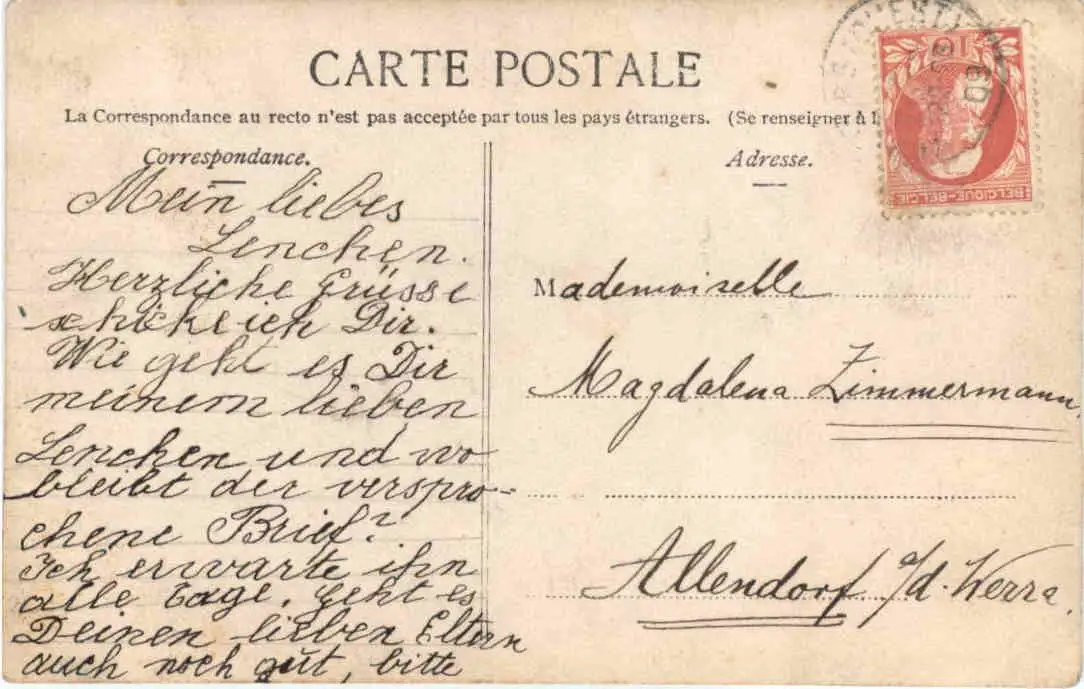 CARTE POSTALE
La Correspondance au recto n'est pas acceptée par tous les pays étrangers. (Se renseigner à
Correspondance.
Mein liebes
Lenchen.
Herzliche Grüsse
schicke ich Dir.
Wie geht es Dir
meinem lieben
Lenchen und wo
bleibt der verspro-
chene Brief?
Ich erwarte ihn
alle Tage. Geht es
Deinen lieben Eltern
auch noch gut, bitte
Adresse.
Mademoiselle
Magdalena Zimmermann.
Allendorf a/d. Werra.
BELGIQUE-BELGIE
09